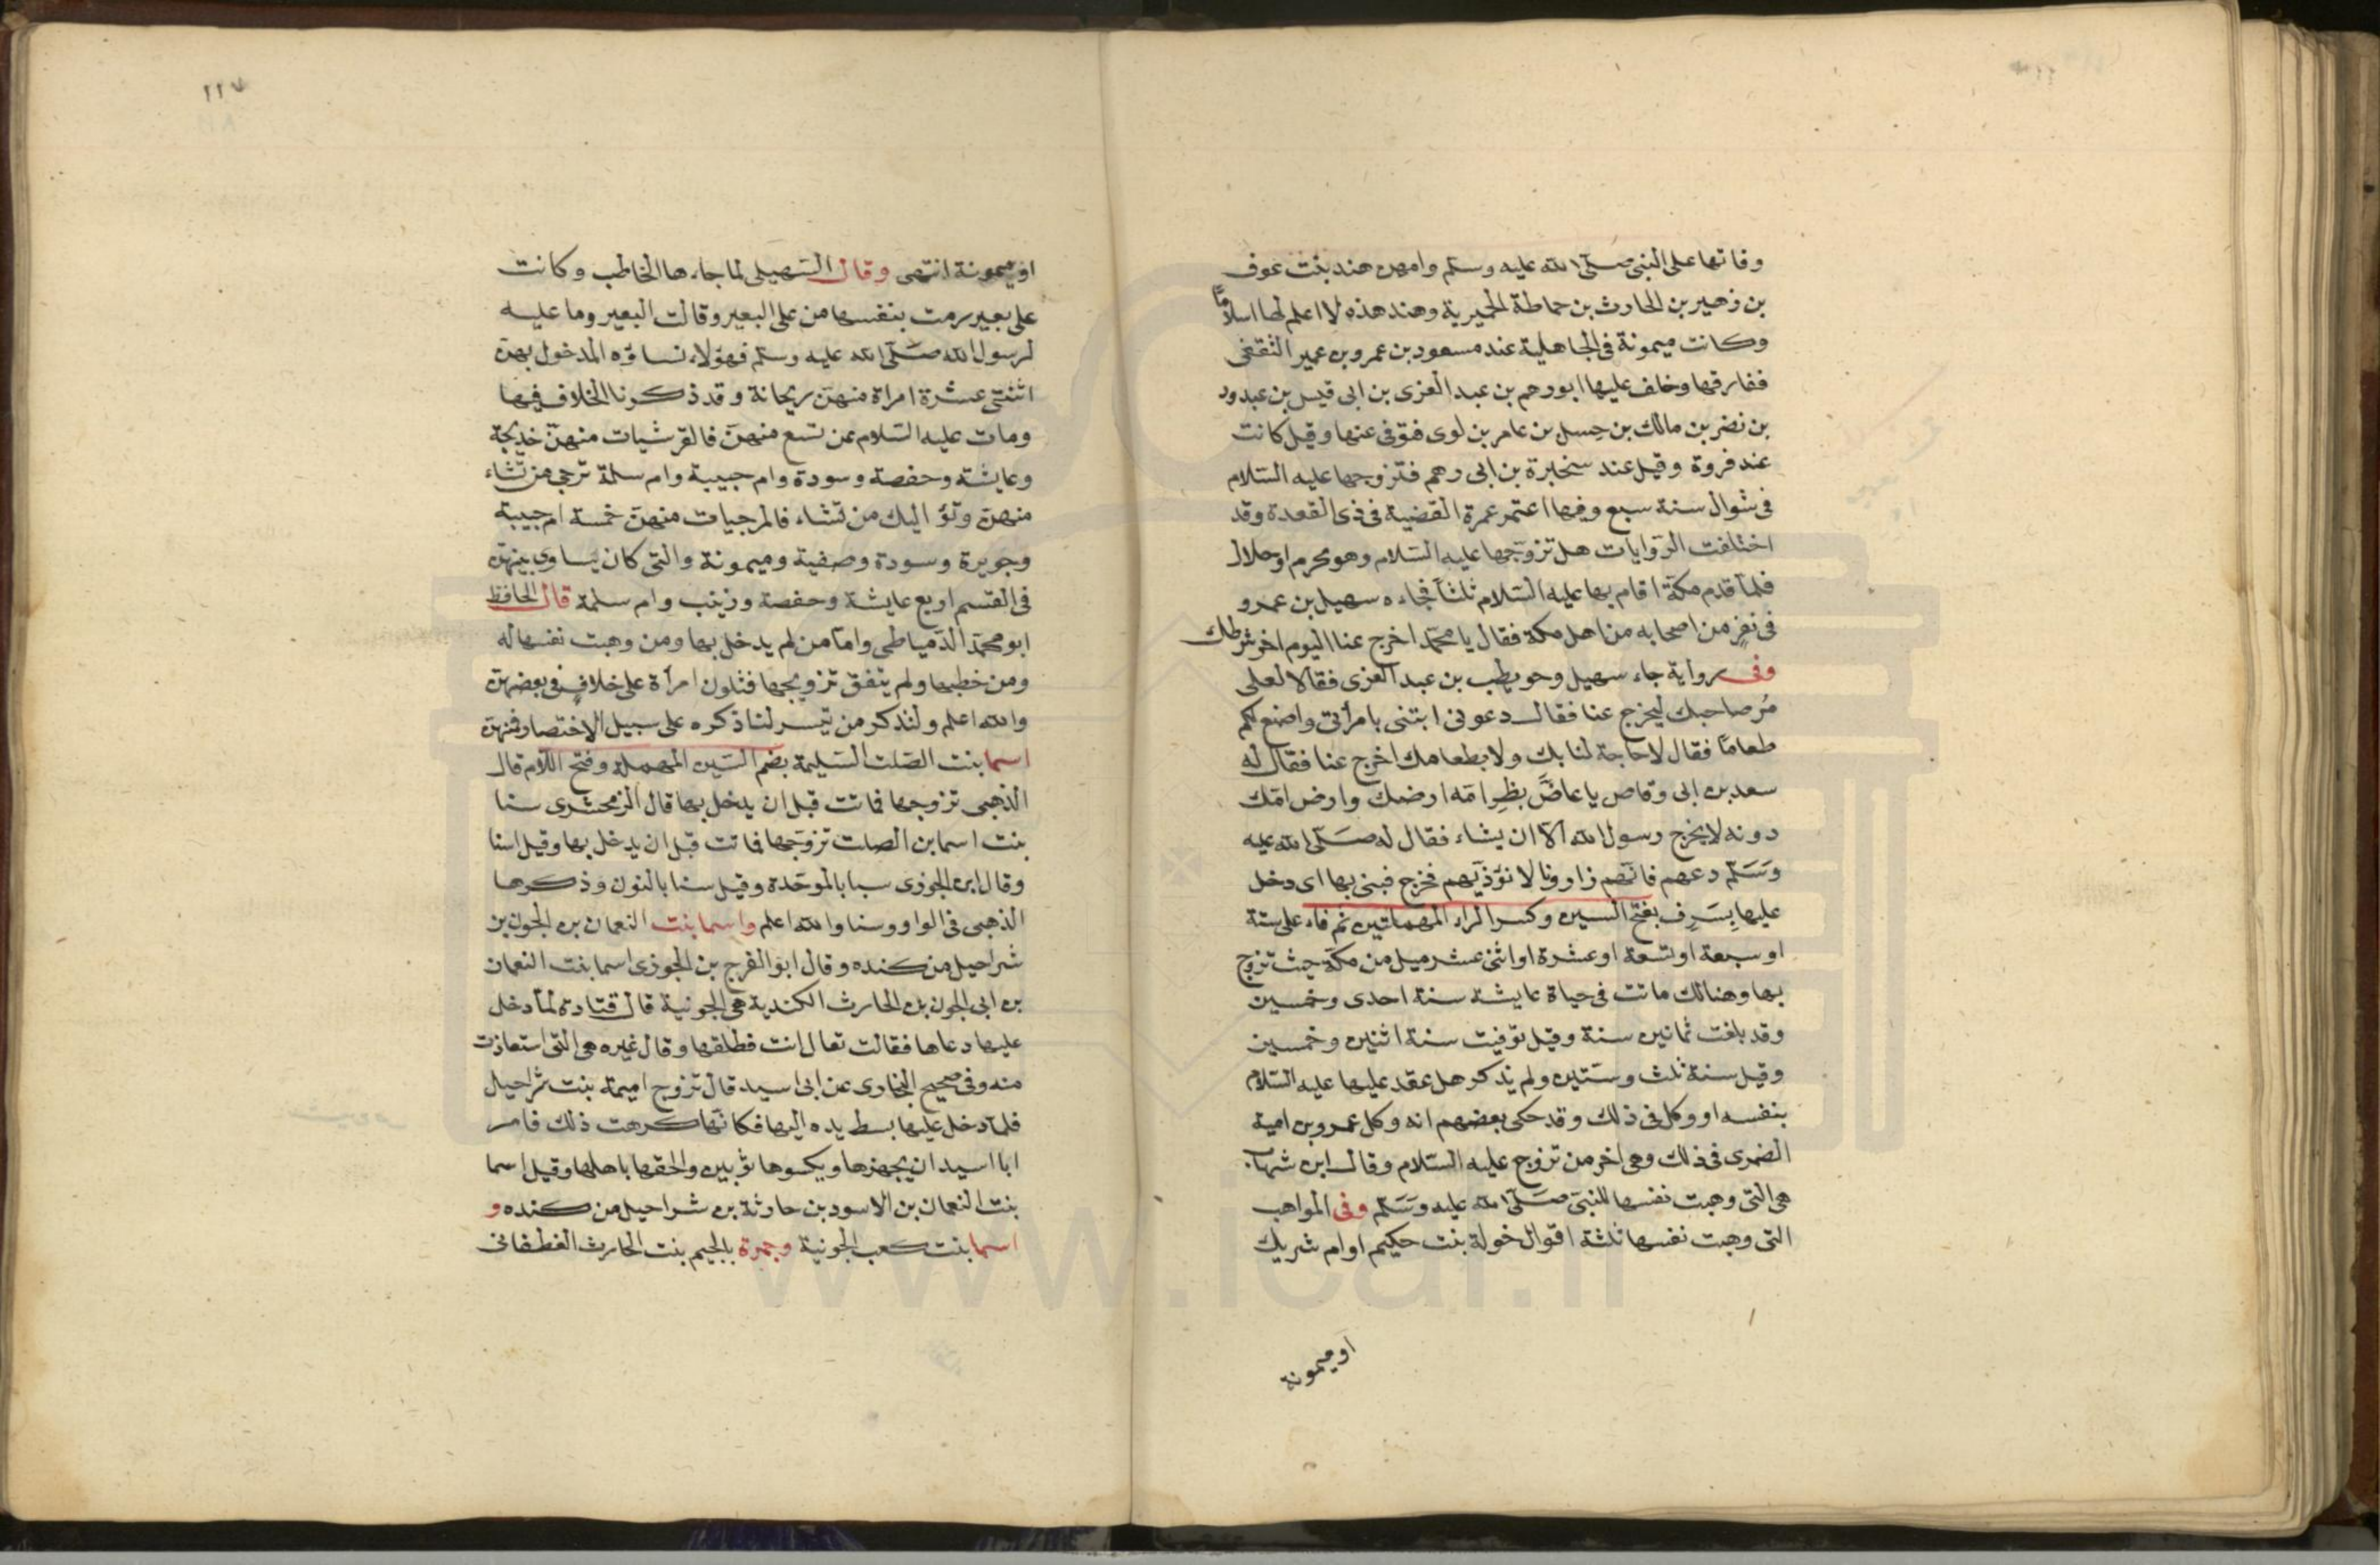 وفاتها على النبي صلى الله عليه وسلم وامهن هند بنت عوف
بن زهير بن الحارث بن حماطة الحميرية وهند هذه لا اعلم لها اسلامًا
وكانت ميمونة في الجاهلية عند مسعود بن عمرو بن عمير الثقفي
ففارقها وخلف عليها ابو رهم بن عبد العزى بن ابى قيس بن عبدود
بن نضر بن مالك بن حِسل بن عامر بن لوى فتوفى عنها وقيل كانت
عند فروة وقيل عند سخبرة بن ابى رهم فتزوجها عليه السلام
فى شوال سنة سبع وفيها اعتمر عمرة القضية فى ذى القعدة وقد
اختلفت الروايات هل تزوجها عليه السلام وهو محرم او حلال
فلما قدم مكة اقام بها عليه السلام ثلثاً فجاءه سهيل بن عمرو
فى نفرٍ من اصحابه من اهل مكة فقال يا محمد اخرج عنا اليوم اخر شرطك
وفى رواية جاء سهيل وحويطب بن عبد العزى فقالا لعلى
مُر صاحبك ليخرج عنا فقال دعونى ابتنى بامرأتى واصنع لكم
طعامًا فقال لا حاجة لنا بك ولا بطعامك اخرج عنا فقال له
سعد بن ابى وقاص يا عاضَّ بظرِ امّه ارضك وارض امّك
دونه لا يخرج رسول الله الاّ ان يشاء فقال له صلى الله عليه
وسَلّم دعهم فانّهم زاورنا لا نؤذيهم فخرج فبنى بها اى دخل
عليها بِسَرِف بفتح السين وكسر الراء المهملتين ثم فاء على ستة
او سبعة او تسعة او عشرة او اثنى عشر ميل من مكة حيث تزوج
بها وهنالك ماتت فى حياة عايشة سنة احدى وخمسين
وقد بلغت ثمانين سنة وقيل توفيت سنة اثنين وخمسين
وقيل سنة ثلث وستين ولم يذكر هل عقد عليها عليه السلام
بنفسه او وكل فى ذلك وقد حكى بعضهم انه وكل عمرو بن امية
الضمرى فى ذلك وهى اخر من تزوج عليه السلام وقال ابن شهاب
هى التى وهبت نفسها للنبى صَلّى الله عليه وسَلّم وفى المواهب
التى وهبت نفسها ثلثة اقوال خولة بنت حكيم او ام شريك
او ميمونة
١١٧
او ميمونة انتهى وقال السهيلى لما جاءها الخاطب وكانت
على بعير رمت بنفسها من على البعير وقالت البعير وما عليه
لرسول الله صَلّى الله عليه وسلم فهؤلاء نساؤه المدخول بهن
اثنتى عشرة امراة منهن ريحانة وقد ذكرنا الخلاف فيها
ومات عليه السلام عن تسع منهن فالقرشيات منهن خديجة
وعايشة وحفصة وسودة وام حبيبة وام سلمة ترجى من تشاء
منهن وتؤ اليك من تشاء فالمرجيات منهن خمسة ام حبيبة
وجويرة وسودة وصفية وميمونة والتى كان يساوى بينهن
فى القسم اربع عايشة وحفصة وزينب وام سلمة قال الحافظ
ابو محمد الدمياطى واما من لم يدخل بها ومن وهبت نفسها له
ومن خطبها ولم يتفق تزويجها فثلون امرأة على خلافٍ فى بعضهن
والله اعلم ولنذكر من تيسر لنا ذكره على سبيل الاختصار فمنهن
اسما بنت الصلت السليمة بضم السين المهملة وفتح اللام قال
الذهبى تزوجها فماتت قبل ان يدخل بها قال الزمخشرى سنا
بنت اسما بن الصلت تزوجها فماتت قبل ان يدخل بها وقيل اسنا
وقال ابن الجوزى سبا بالموحدة وقيل سنا بالنون وذكرها
الذهبى فى الواو وسنا والله اعلم واسما بنت النعمان بن الجون بن
شراحيل من كنده وقال ابو الفرج بن الجوزى اسما بنت النعمان
بن ابى الجون بن الحارث الكندية هى الجونية قال قتادة لما دخل
عليها دعاها فقالت تعال انت فطلقها وقال غيره هى التى استعاذت
منه وفى صحيح البخارى عن ابى اسيد قال تزوج اميمة بنت شراحيل
فلما دخل عليها بسط يده اليها فكانّها كرهت ذلك فامر
ابا اسيد ان يجهزها ويكسوها ثوبين والحقها باهلها وقيل اسما
بنت النعمان بن الاسود بن حارثة بن شراحيل من كنده و
اسما بنت كعب الجونية وجمرة بالجيم بنت الحارث الغطفانى
www.ical.ir